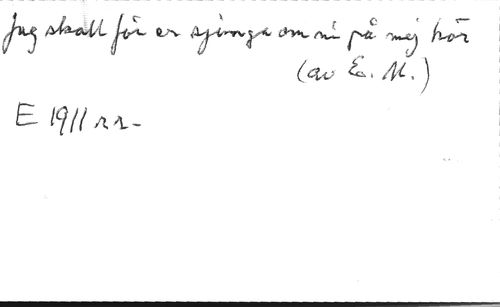 Jag skall för er sjunga om ni på mej hör
(av E. M.)
E 1911 r r-